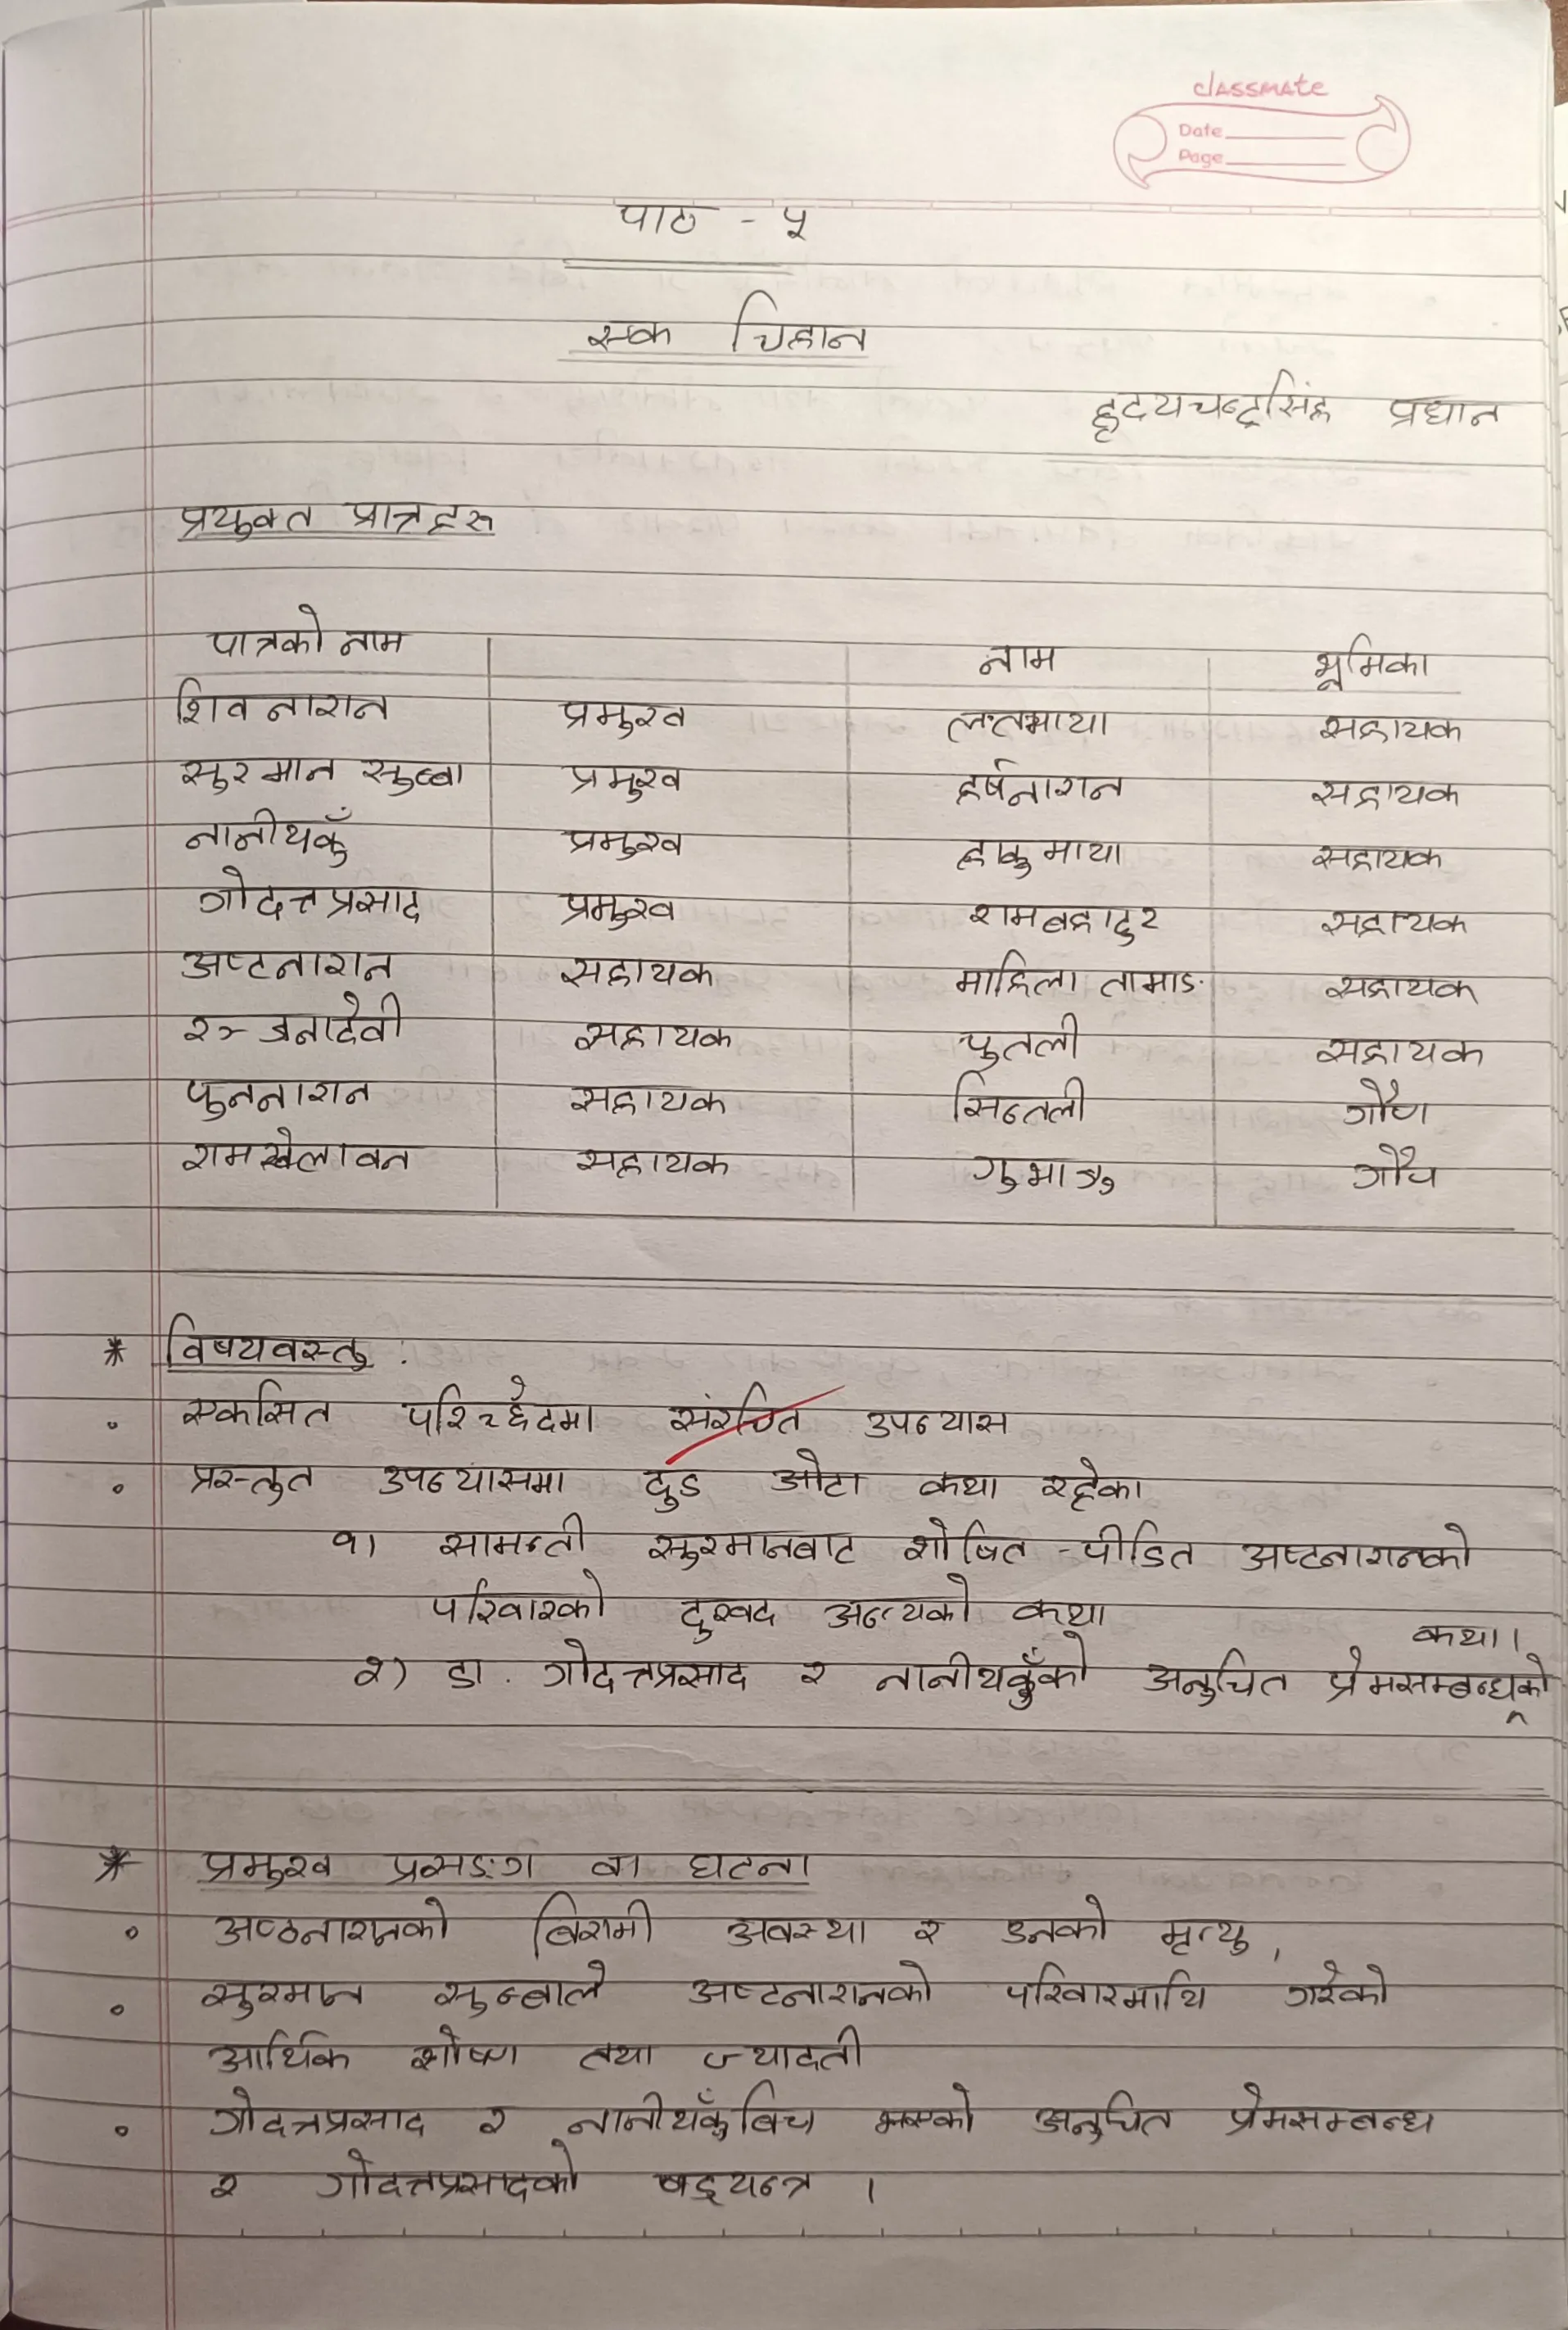 classmate
Date
Page
पाठ - ५
एक चिहान
हृदयचन्द्रसिंह प्रधान
प्रयुक्त प्रात्रहरू
पात्रको नाम नाम भूमिका
शिवनारान प्रमुख लतमाया सहायक
सुरमान सुब्बा प्रमुख हर्षनारान सहायक
नानीथकुँ प्रमुख हाकुमाया सहायक
गोदत्तप्रसाद प्रमुख रामबहादुर सहायक
अष्टनारान सहायक माहिला तामाङ सहायक
रञ्जनादेवी सहायक पुतली सहायक
पुननारान सहायक सिन्तली गौण
रामखेलावन सहायक गुभाजु गौण
* विषयवस्तु :
• एकसित परिच्छेदमा संरचित उपन्यास
• प्रस्तुत उपन्यासमा दुइ ओटा कथा रहेका
१) सामन्ती सुरमानबाट शोषित - पीडित अष्टनारानको
परिवारको दुखद अन्त्यको कथा
२) डा. गोदत्तप्रसाद र नानीथकुँको अनुचित प्रेमसम्बन्धको कथा।
* प्रमुख प्रसङ्ग वा घटना
• अष्ठनारानको बिरामी अवस्था र उनको मृत्यु,
• सुरमान सुब्बाले अष्टनारानको परिवारमाथि गरेको
आर्थिक शोषण तथा ज्यादती
• गोदत्तप्रसाद र नानीथकुँबिच भएको अनुचित प्रेमसम्बन्ध
र गोदत्तप्रसादको षड्यन्त्र ।